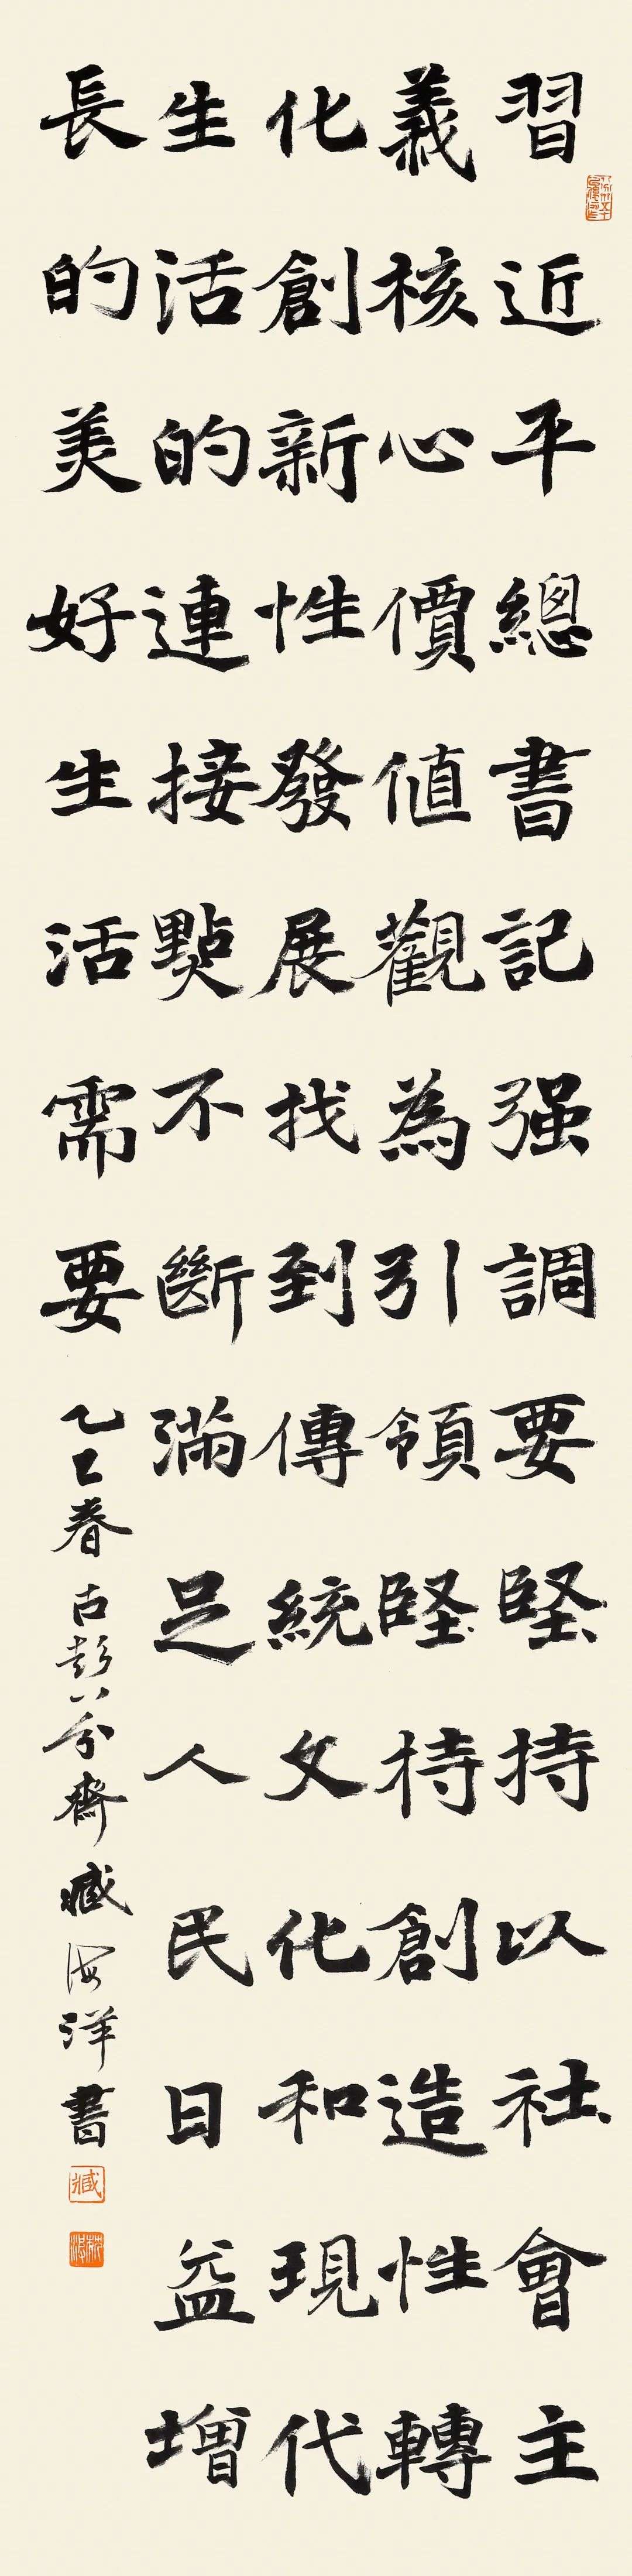 習近平總書記强調要堅持以社會主
義核心價值觀為引領堅持創造性轉
化創新性發展找到傳統文化和現代
生活的連接點不斷滿足人民日益增
長的美好生活需要
乙巳春古彭八分齋臧海洋書
臧